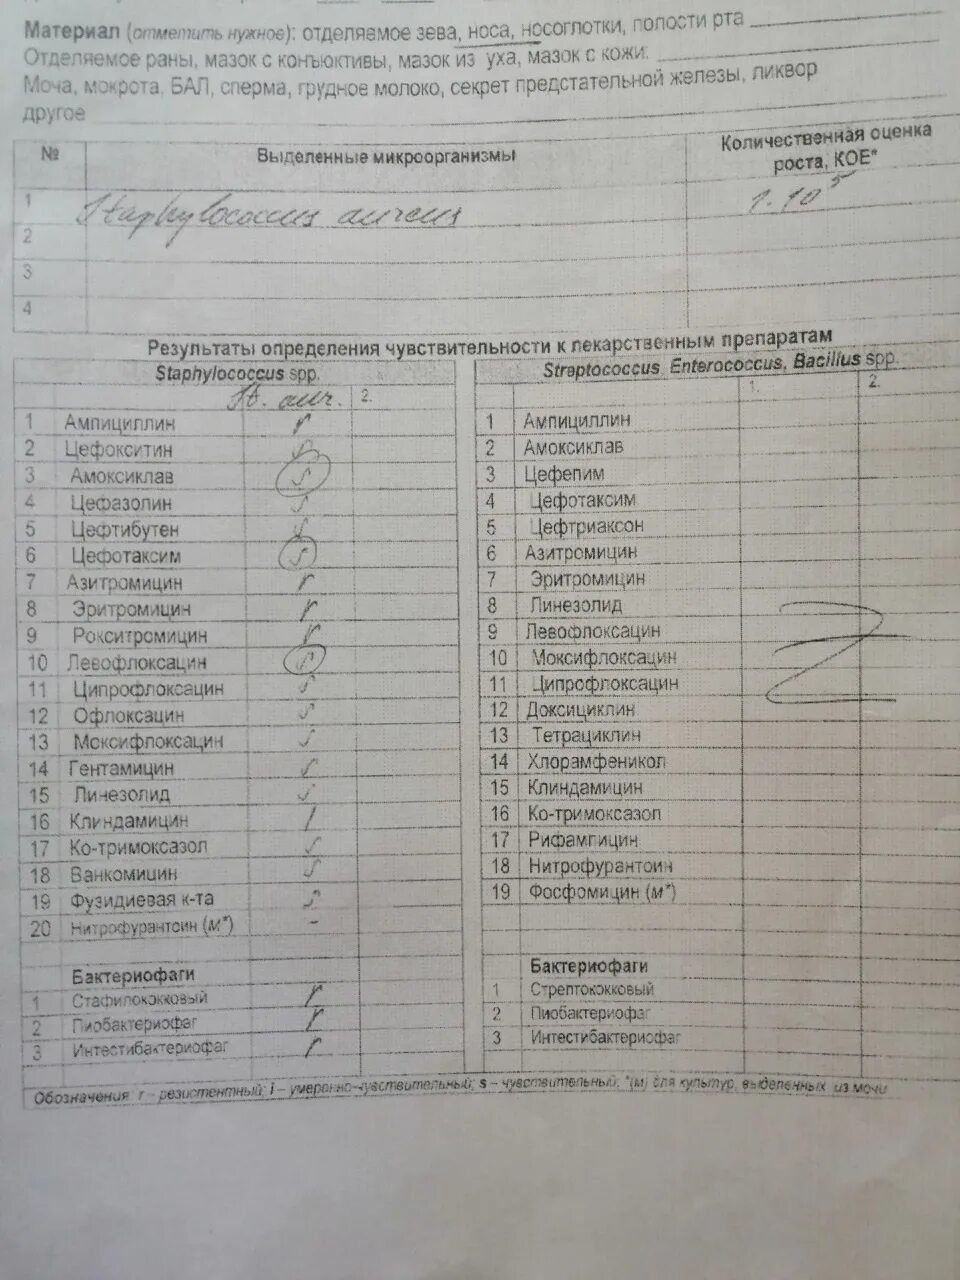 Материал (отметить нужное): отделяемое зева, носа, носоглотки, полости рта
Отделяемое раны, мазок с конъюктивы, мазок из уха, мазок с кожи.
Моча, мокрота, БАЛ, сперма, грудное молоко, секрет предстательной железы, ликвор
другое
№ Выделенные микроорганизмы Количественная оценка роста, КОЕ*
1 Staphylococcus aureus 1·10⁵
2
3
4
Результаты определения чувствительности к лекарственным препаратам
Staphylococcus spp.
St. aur. 2.
1 Ампициллин r
2 Цефокситин s
3 Амоксиклав s
4 Цефазолин s
5 Цефтибутен s
6 Цефотаксим s
7 Азитромицин r
8 Эритромицин r
9 Рокситромицин r
10 Левофлоксацин s
11 Ципрофлоксацин s
12 Офлоксацин s
13 Моксифлоксацин s
14 Гентамицин s
15 Линезолид s
16 Клиндамицин
17 Ко-тримоксазол s
18 Ванкомицин s
19 Фузидиевая к-та s
20 Нитрофурантоин (м*) -
Бактериофаги
1 Стафилококковый r
2 Пиобактериофаг r
3 Интестибактериофаг r
Streptococcus, Enterococcus, Bacillus spp.
1. 2.
1 Ампициллин
2 Амоксиклав
3 Цефепим
4 Цефотаксим
5 Цефтриаксон
6 Азитромицин
7 Эритромицин
8 Линезолид
9 Левофлоксацин
10 Моксифлоксацин
11 Ципрофлоксацин
12 Доксициклин
13 Тетрациклин
14 Хлорамфеникол
15 Клиндамицин
16 Ко-тримоксазол
17 Рифампицин
18 Нитрофурантоин
19 Фосфомицин (м*)
Бактериофаги
1 Стрептококковый
2 Пиобактериофаг
3 Интестибактериофаг
Обозначения: r – резистентный; i – умеренно-чувствительный; s – чувствительный; *(м) для культур, выделенных из мочи